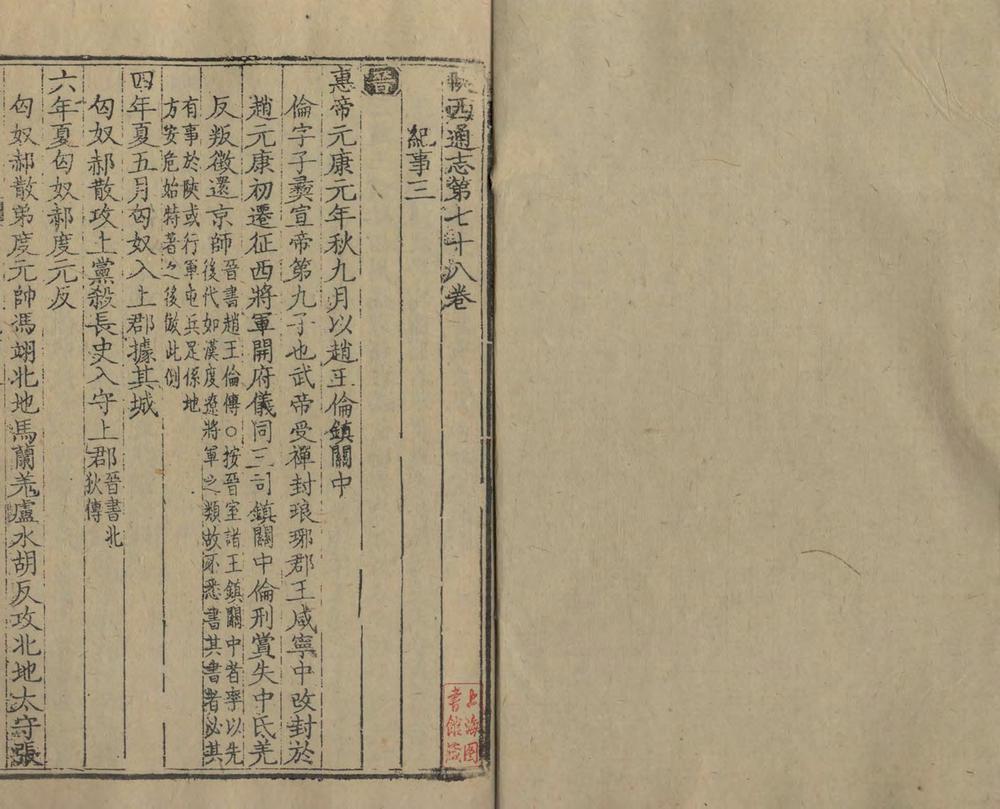 陝西通志第七十八卷
紀事三
晉
惠帝元康元年秋九月以趙王倫鎮關中
倫字子彝宣帝第九子也武帝受禪封琅琊郡王咸寧中改封於
趙元康初遷征西將軍開府儀同三司鎮關中倫刑賞失中氐羌
反叛徵還京師晉書趙王倫傳○按晉室諸王鎮關中者率以先
後代如漢度遼將軍之類故不悉書其書者必其
有事於陝或行軍屯兵足係地
方安危始特著之後倣此例
四年夏五月匈奴入上郡據其城
匈奴郝散攻上黨殺長史入守上郡晉書北
狄傳
六年夏匈奴郝度元反
匈奴郝散弟度元帥馮翊北地馬蘭羌盧水胡反攻北地太守張
上海图
書館藏